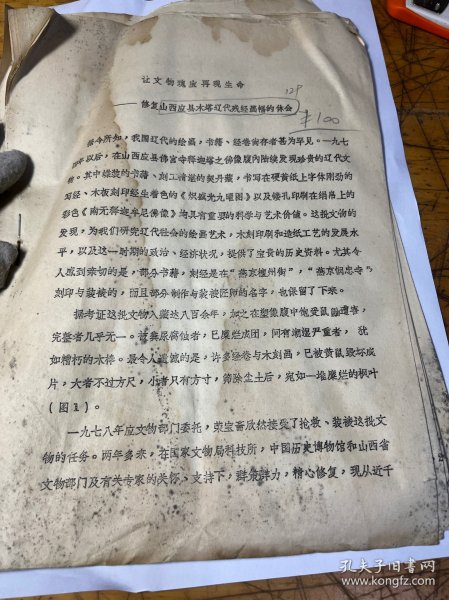 让文物瑰宝再现生命
129
——修复山西应县木塔辽代残经画幅的体会
¥100
据今所知，我国辽代的绘画，书籍、经卷尚存者甚为罕见。一九七
四年以后，在山西应县佛宫寺释迦塔之佛像腹内陆续发现珍贵的辽代文
物。其中雄浑的书籍、刻工精湛的契丹藏，书写在硬黄纸上字体刚劲的
写经、木板刻印经生着色的《炽盛光九曜图》以及镂孔印刷在绢帛上的
彩色《南无释迦牟尼佛像》均具有重要的科学与艺术价值。这批文物的
发现，为我们研究辽代社会的绘画艺术，木刻印刷和造纸工艺的发展水
平，以及这一时期的政治、经济状况，提供了宝贵的历史资料。尤其令
人感到亲切的是，部分书籍，刻经是在“燕京檀州街”，“燕京悯忠寺”
刻印与装裱的，而且部分制作与装裱匠师的名字，也保留了下来。
据考证这批文物入藏达八百余年，加之在塑像腹中饱受鼠啮虫害，
完整者几乎无一。被粪尿腐蚀者，已糜烂成团，间有潮湿严重者，犹
如糟朽的木棒。最令人遗憾的是，许多经卷与木刻画，已被黄鼠毁坏成
片，大者不过方尺，小者只有方寸，筛除尘土后，宛如一堆糜烂的枫叶
（图1）。
一九七八年应文物部门委托，荣宝斋欣然接受了抢救、装裱这批文
物的任务。两年多来，在国家文物局科技所，中国历史博物馆和山西省
文物部门及有关专家的关怀、支持下，群策群力，精心修复，现从近千
孔夫子旧书网
www.kongfz.com